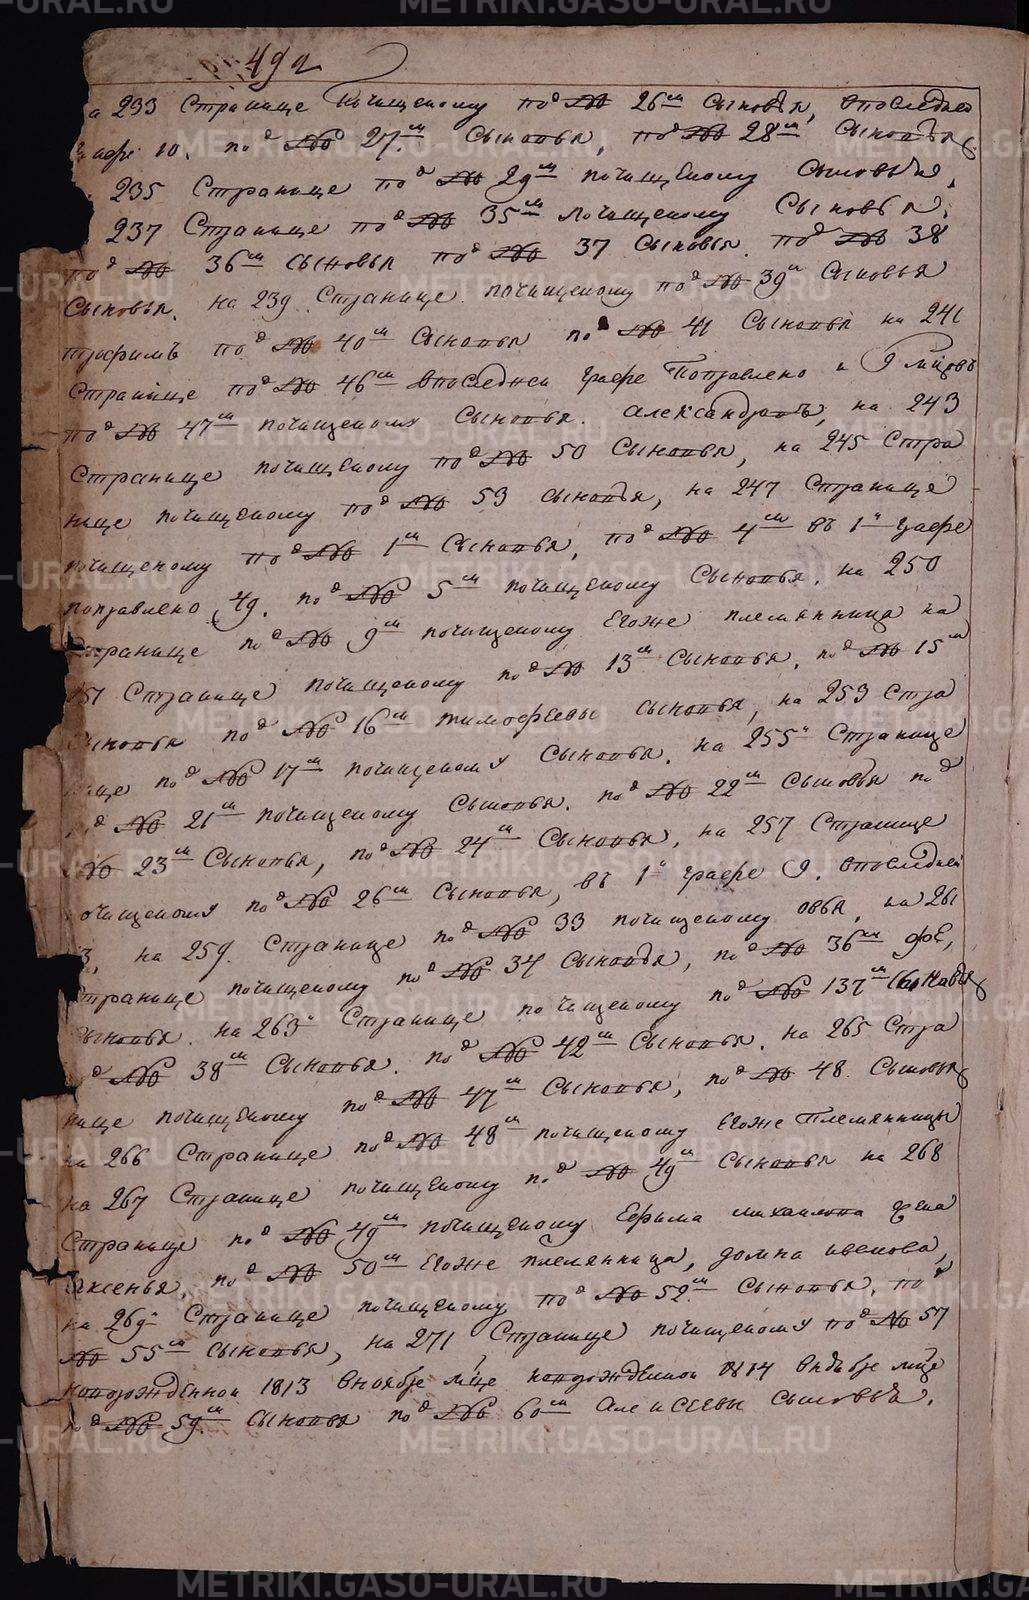 492
а 233 Странице почищеному подъ № 26мъ Сыновья, впоследней
графе 10. подъ № 27.мъ Сыновья, подъ № 28мъ Сыновья,
235 Странице подъ № 29мъ почищеному Сыновья,
237 Странице подъ № 35мъ почищеному Сыновья.
подъ № 36мъ Сыновья подъ № 37 Сыновья. подъ № 38
Сыновья. на 239 Странице почищеному подъ № 39й Сыновья
трофимъ подъ № 40мъ Сыновья подъ № 41 Сыновья на 241
Странице подъ № 46мъ впоследней графе Поправлено и 9
подъ № 47мъ почищеному Сыновья. александровъ, на 243
Странице почищеному подъ № 50 Сыновья, на 245 Стра
нице почищеному подъ № 53 Сыновья, на 247 Странице
почищеному подъ № 1мъ Сыновья, подъ № 4мъ въ 1й графе
поправлено 49. подъ № 5мъ почищеному Сыновья. на 250
Странице подъ № 9мъ почищеному Егоже племянница на
251 Странице почищеному подъ № 13мъ Сыновья, подъ № 15мъ
Сыновья подъ № 16мъ тимофеевы сыновья, на 253 Стра
нице подъ № 17мъ почищеному Сыновья. на 255й Странице
подъ № 21мъ почищеному Сыновья. подъ № 22мъ Сыновья подъ
№ 23мъ Сыновья, подъ № 24мъ Сыновья, на 257 Странице
почищеному подъ № 26мъ Сыновья, въ 1й графе 9. впоследней
3, на 259. Странице подъ № 33 почищеному овья, на 261
Странице почищеному подъ № 34 Сыновья, подъ № 36мъ
Сыновья. на 263й Странице почищеному подъ № 137мъ Сыновья
подъ № 38мъ Сыновья. подъ № 42мъ Сыновья. на 265 Стра
нице почищеному подъ № 47мъ Сыновья, подъ № 48. Сыновья
на 266 Странице подъ № 48мъ почищеному Егоже Племянницы
на 267 Странице почищеному подъ № 49мъ Сыновья на 268
Странице подъ № 49мъ почищеному Ефима михаилова жена
аксенья, подъ № 50мъ Егоже племянница, домна ивенова,
на 269й Странице почищеному подъ № 52мъ Сыновья, подъ
№ 55мъ Сыновья, на 271, Странице почищеному подъ № 57
новорожденной 1813 вноябре мце новорожденной 1814 вдекабре мце
подъ № 59.мъ Сыновья подъ № 60мъ Алексеевы Сыновья.